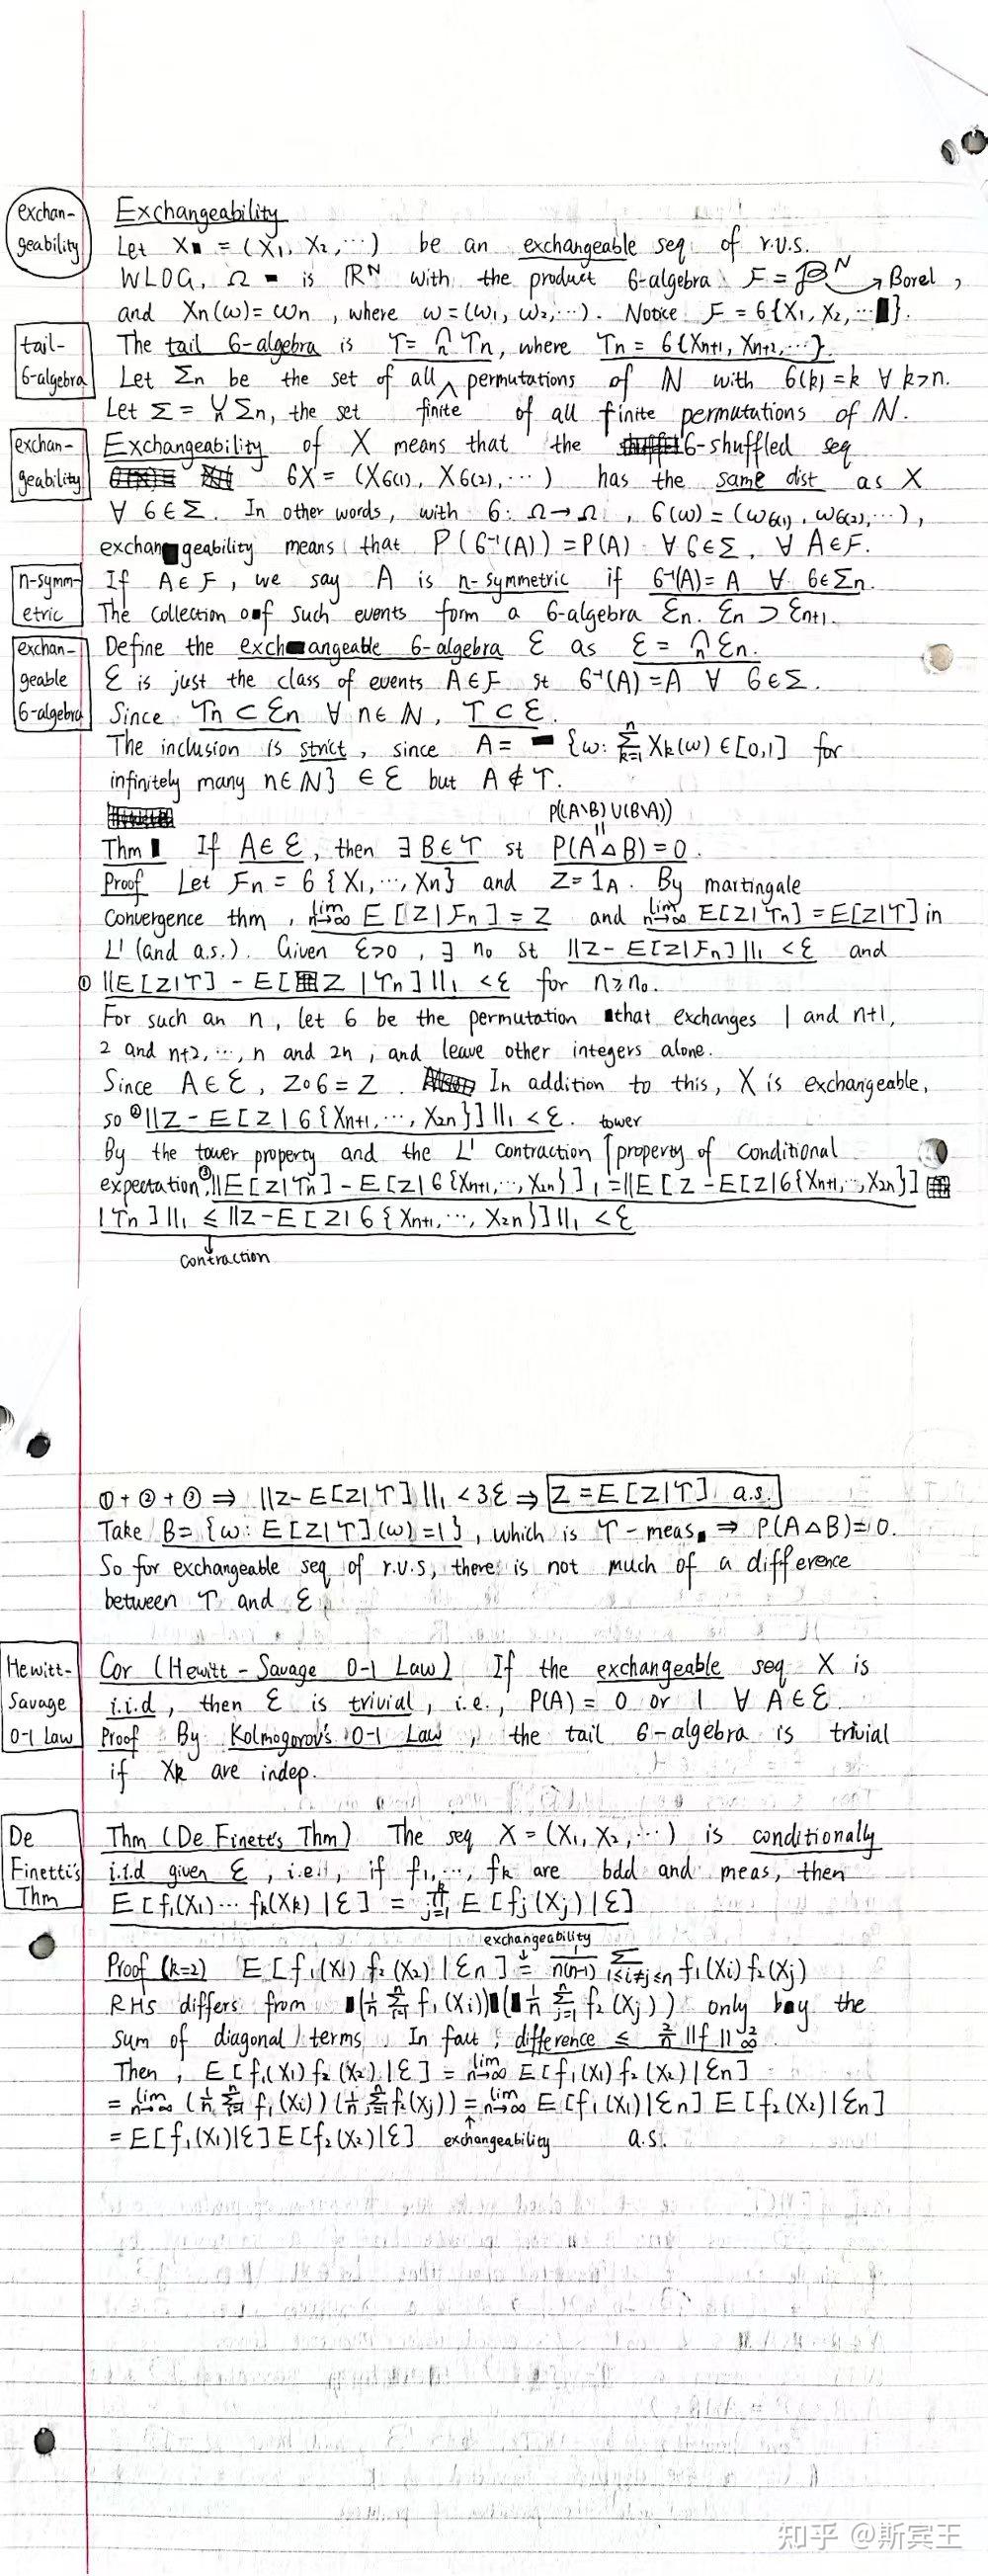 exchan-
geability
Exchangeability
Let X = (X₁, X₂, ⋯) be an exchangeable seq of r.v.s.
WLOG, Ω is ℝᴺ with the product σ-algebra F = 𝓑ᴺ → Borel,
and Xn(ω) = ωn, where ω = (ω₁, ω₂, ⋯). Notice F = σ{X₁, X₂, ⋯}.
tail-
σ-algebra
The tail σ-algebra is 𝒯 = ∩n 𝒯n, where 𝒯n = σ{Xn+1, Xn+2, ⋯}
Let Σn be the set of all ∧ finite permutations of ℕ with σ(k)=k ∀ k>n.
Let Σ = ∪n Σn, the set of all finite permutations of ℕ.
exchan-
geability
Exchangeability of X means that the σ-shuffled seq
σX = (Xσ(1), Xσ(2), ⋯) has the same dist as X
∀ σ∈Σ. In other words, with σ: Ω→Ω, σ(ω) = (ωσ(1), ωσ(2), ⋯),
exchangeability means that P(σ⁻¹(A)) = P(A) ∀ σ∈Σ, ∀ A∈F.
n-symm-
etric
If A∈F, we say A is n-symmetric if σ⁻¹(A) = A ∀ σ∈Σn.
The collection of such events form a σ-algebra ℰn. ℰn ⊃ ℰn+1.
exchan-
geable
σ-algebra
Define the exchangeable σ-algebra ℰ as ℰ = ∩n ℰn.
ℰ is just the class of events A∈F st σ⁻¹(A) = A ∀ σ∈Σ.
Since 𝒯n ⊂ ℰn ∀ n∈ℕ, 𝒯 ⊂ ℰ.
The inclusion is strict, since A = {ω: Σₖ₌₁ⁿ Xk(ω) ∈[0,1] for
infinitely many n∈ℕ} ∈ ℰ but A ∉ 𝒯.
P((A\B)∪(B\A))
Thm If A∈ℰ, then ∃ B∈𝒯 st P(A△B)=0.
Proof Let Fn = σ{X₁,⋯,Xn} and Z = 1A. By martingale
convergence thm, lim n→∞ E[Z|Fn] = Z and lim n→∞ E[Z|𝒯n] = E[Z|𝒯] in
L¹ (and a.s.). Given ε>0, ∃ n₀ st ||Z - E[Z|Fn]||₁ < ε and
① ||E[Z|𝒯] - E[Z|𝒯n]||₁ < ε for n≥n₀.
For such an n, let σ be the permutation that exchanges 1 and n+1,
2 and n+2, ⋯, n and 2n, and leave other integers alone.
Since A∈ℰ, Z∘σ = Z. In addition to this, X is exchangeable,
so ② ||Z - E[Z|σ{Xn+1,⋯,X2n}]||₁ < ε. tower
By the tower property and the L¹ contraction property of conditional
expectation, ③ ||E[Z|𝒯n] - E[Z|σ{Xn+1,⋯,X2n}]||₁ = ||E[Z - E[Z|σ{Xn+1,⋯,X2n}]
|𝒯n]||₁ ≤ ||Z - E[Z|σ{Xn+1,⋯,X2n}]||₁ < ε
contraction
①+②+③ ⇒ ||Z - E[Z|𝒯]||₁ < 3ε ⇒ Z = E[Z|𝒯] a.s.
Take B = {ω: E[Z|𝒯](ω)=1}, which is 𝒯-meas ⇒ P(A△B)=0.
So for exchangeable seq of r.v.s, there is not much of a difference
between 𝒯 and ℰ.
Hewitt-
Savage
0-1 Law
Cor (Hewitt-Savage 0-1 Law) If the exchangeable seq X is
i.i.d, then ℰ is trivial, i.e., P(A) = 0 or 1 ∀ A∈ℰ.
Proof By Kolmogorov's 0-1 Law, the tail σ-algebra is trivial
if Xk are indep.
De
Finetti's
Thm
Thm (De Finetti's Thm) The seq X = (X₁, X₂, ⋯) is conditionally
i.i.d given ℰ, i.e., if f₁,⋯, fk are bdd and meas, then
E[f₁(X₁)⋯fk(Xk)|ℰ] = ∏ⱼ₌₁ᵏ E[fj(Xj)|ℰ]
exchangeability
Proof (k=2) E[f₁(X₁)f₂(X₂)|ℰn] = 1/n(n-1) Σ 1≤i≠j≤n f₁(Xi)f₂(Xj)
RHS differs from (1/n Σᵢ₌₁ⁿ f₁(Xi))(1/n Σⱼ₌₁ⁿ f₂(Xj)) only by the
sum of diagonal terms. In fact, difference ≤ 2/n ||f||²∞.
Then, E[f₁(X₁)f₂(X₂)|ℰ] = lim n→∞ E[f₁(X₁)f₂(X₂)|ℰn]
= lim n→∞ (1/n Σᵢ₌₁ⁿ f₁(Xi))(1/n Σⱼ₌₁ⁿ f₂(Xj)) = lim n→∞ E[f₁(X₁)|ℰn]E[f₂(X₂)|ℰn]
= E[f₁(X₁)|ℰ]E[f₂(X₂)|ℰ] exchangeability a.s.
知乎 @斯宾王